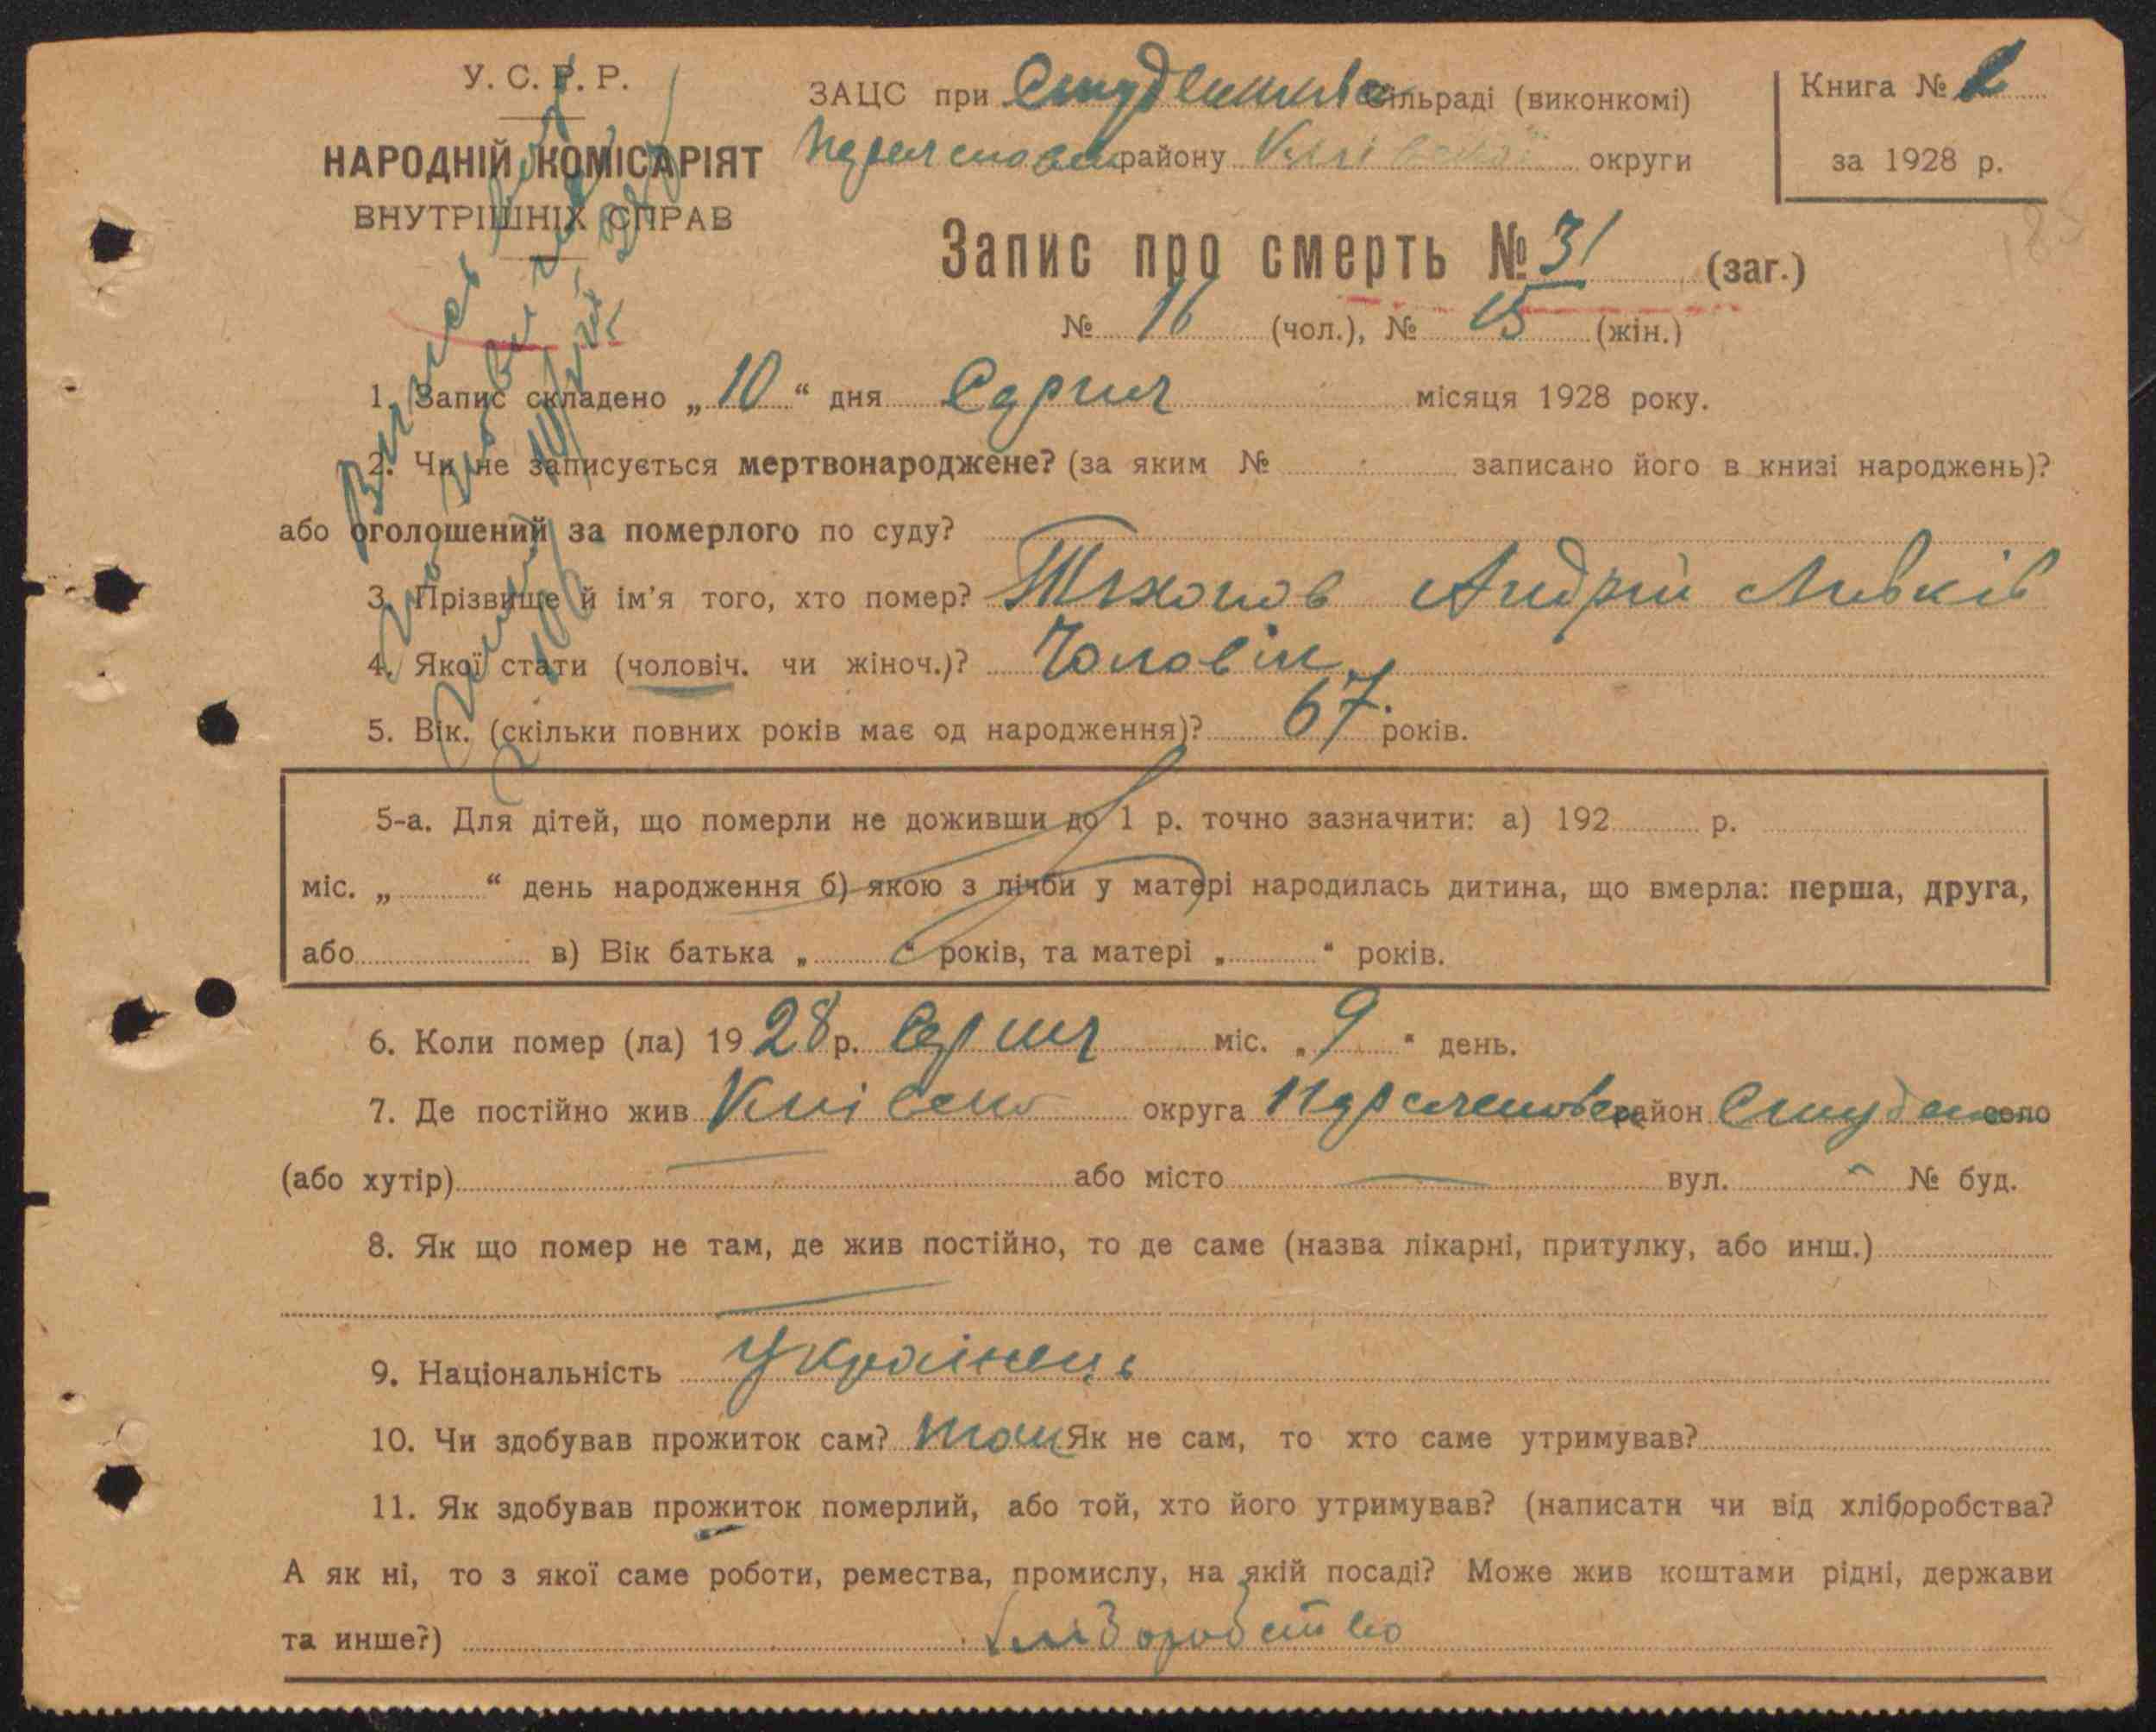 У. С. Р. Р.
НАРОДНІЙ КОМІСАРІЯТ
ВНУТРІШНІХ СПРАВ
ЗАЦС при сільраді (виконкомі)
району округи
Книга № 2
за 1928 р.
Запис про смерть № 31 (заг.)
№ 16 (чол.), № 15 (жін.)
1. Запис складено „ 10 “ дня Серпня місяця 1928 року.
2. Чи не записується мертвонароджене? (за яким № записано його в книзі народжень)?
або оголошений за померлого по суду?
3. Прізвище й ім'я того, хто помер? Тіхонов Андрій
4. Якої стати (чоловіч. чи жіноч.)? Чоловік
5. Вік. (скільки повних років має од народження)? 67 років.
5-а. Для дітей, що померли не доживши до 1 р. точно зазначити: а) 192 р.
міс. „ “ день народження б) якою з лічби у матері народилась дитина, що вмерла: перша, друга,
або в) Вік батька „ “ років, та матері „ “ років.
6. Коли помер (ла) 19 28 р. Серпня міс. „ 9 “ день.
7. Де постійно жив округа район село
(або хутір) — або місто — вул. № буд.
8. Як що помер не там, де жив постійно, то де саме (назва лікарні, притулку, або инш.)
—
9. Національність Українець
10. Чи здобував прожиток сам? Так Як не сам, то хто саме утримував?
11. Як здобував прожиток померлий, або той, хто його утримував? (написати чи від хліборобства?
А як ні, то з якої саме роботи, ремества, промислу, на якій посаді? Може жив коштами рідні, держави
та инше?) Хліборобство